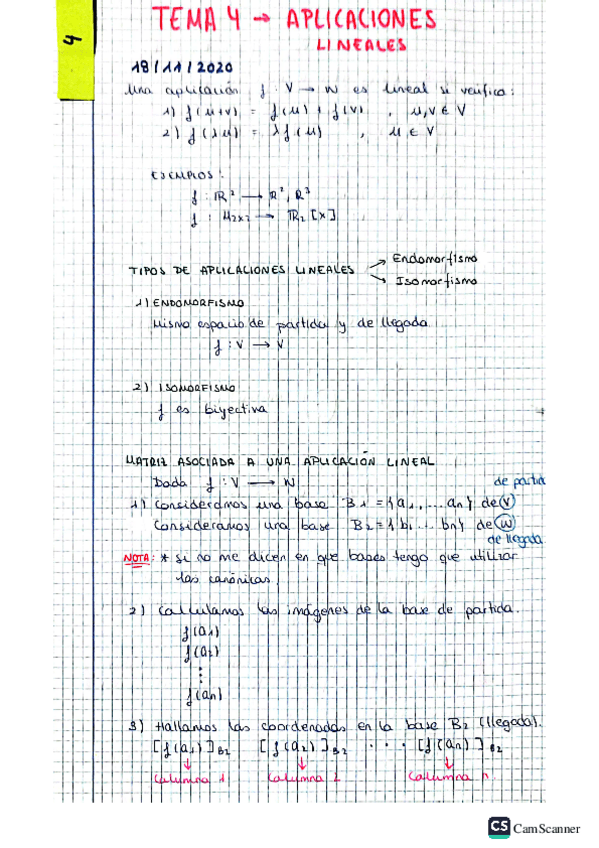 4
TEMA 4 → APLICACIONES
LINEALES
18/11/2020
Una aplicación f: V → W es lineal si verifica:
1) f(u+v) = f(u) + f(v) , u,v ∈ V
2) f(λu) = λf(u) , u ∈ V
EJEMPLOS:
f: ℝ² → ℝ², ℝ³
f: M2x2 → ℝ₂[x]
TIPOS DE APLICACIONES LINEALES → Endomorfismo
→ Isomorfismo
1) ENDOMORFISMO
Mismo espacio de partida y de llegada
f: V → V
2) ISOMORFISMO
f es biyectiva
MATRIZ ASOCIADA A UNA APLICACIÓN LINEAL
Dada f: V → W
de partid
1) Consideramos una base B₁ = {a₁, ... an} de V
Consideramos una base B₂ = {b₁ ... bn} de W
de llegada
NOTA: * si no me dicen en que bases tengo que utilizar
las canónicas.
2) Calculamos las imágenes de la base de partida.
f(a₁)
f(a₂)
⋮
f(an)
3) Hallamos las coordenadas en la base B₂ (llegada).
[f(a₁)]B₂ [f(a₂)]B₂ ... [f(an)]B₂
↓ ↓ ↓
columna 1 columna 2 columna n
CS CamScanner